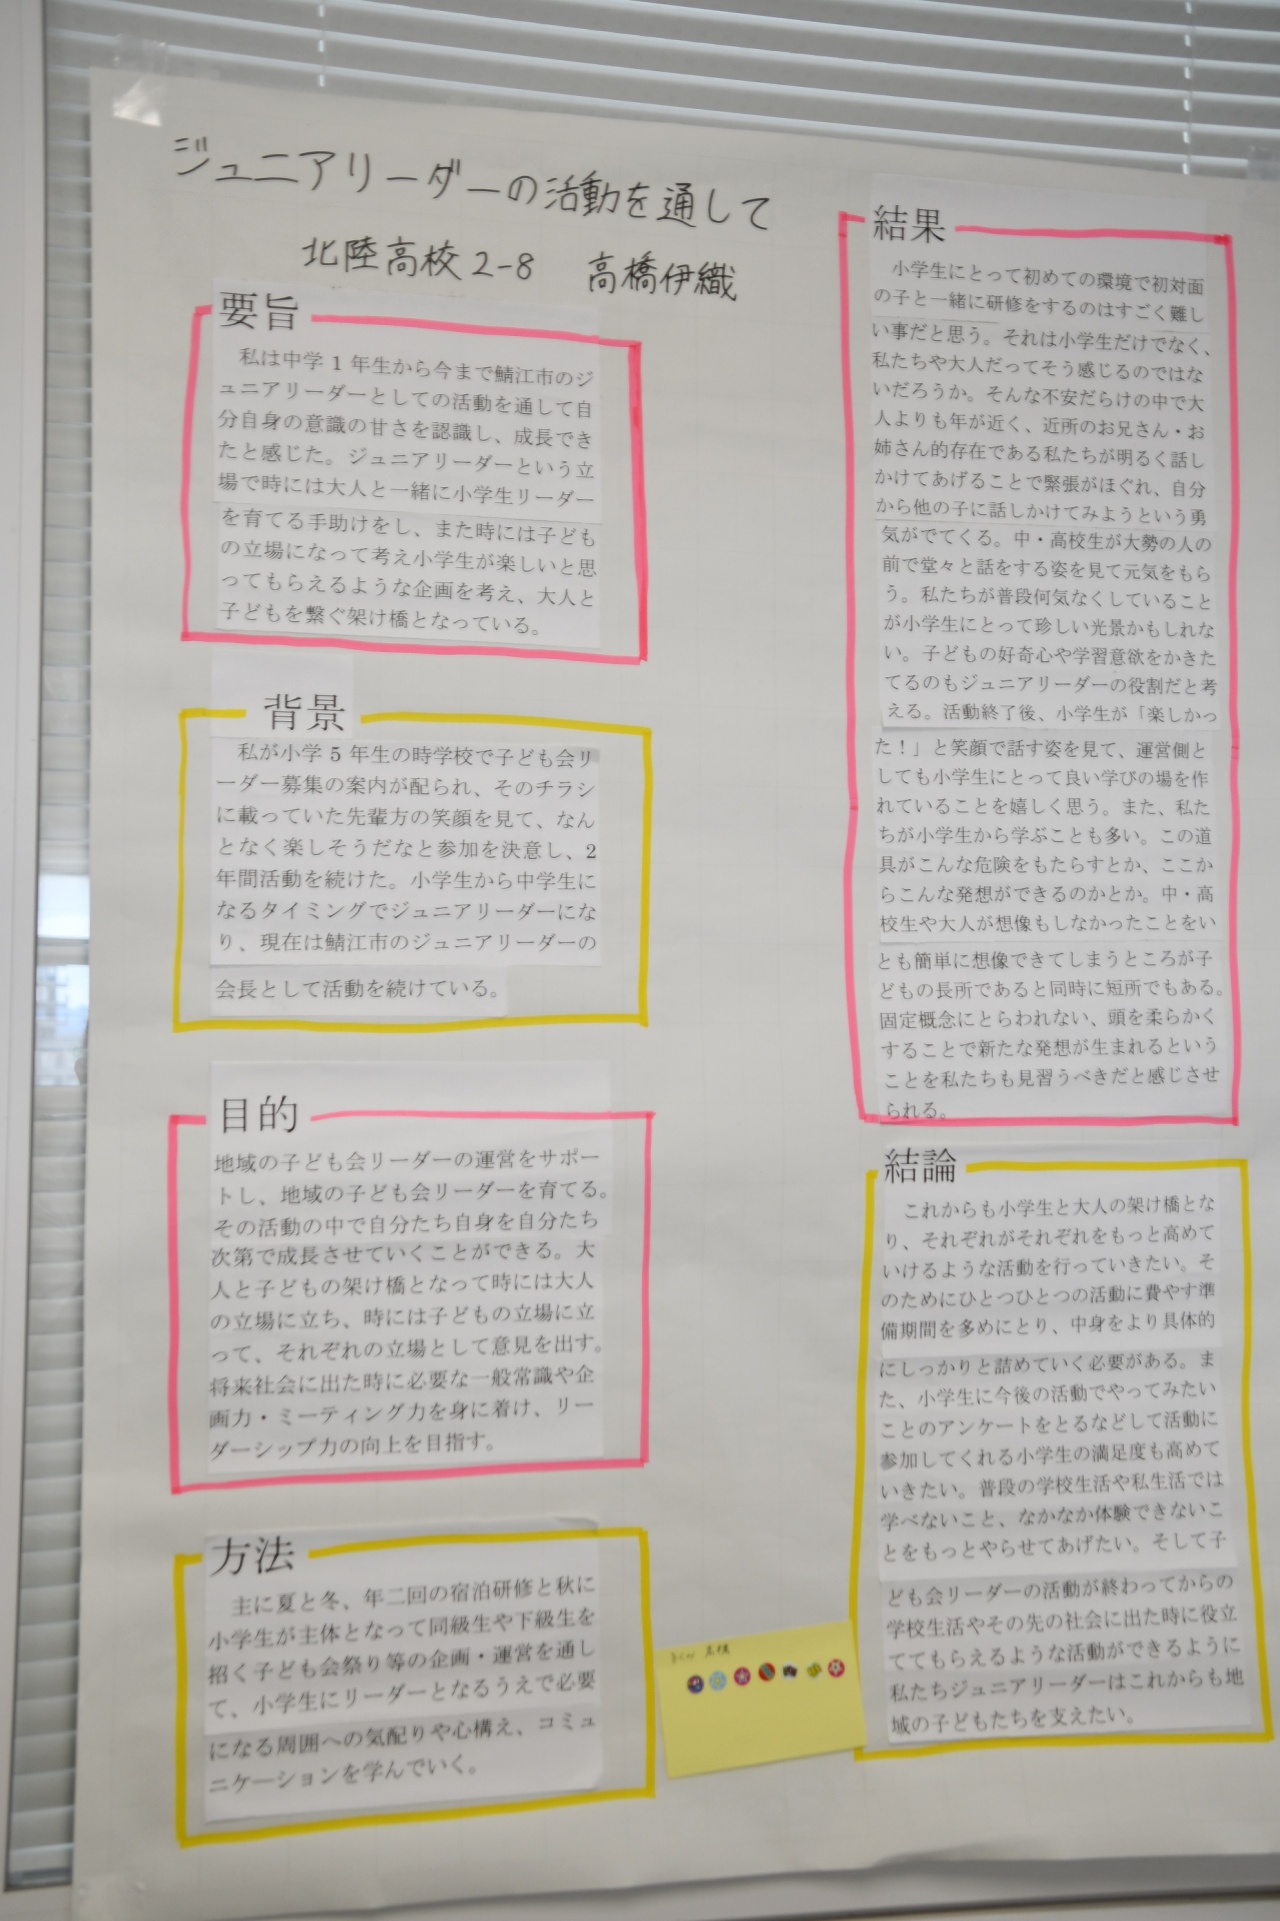 ジュニアリーダーの活動を通して
北陸高校2-8 高橋伊織
要旨
私は中学1年生から今まで鯖江市のジ
ュニアリーダーとしての活動を通して自
分自身の意識の甘さを認識し、成長でき
たと感じた。ジュニアリーダーという立
場で時には大人と一緒に小学生リーダー
を育てる手助けをし、また時には子ども
の立場になって考え小学生が楽しいと思
ってもらえるような企画を考え、大人と
子どもを繋ぐ架け橋となっている。
背景
私が小学5年生の時学校で子ども会リ
ーダー募集の案内が配られ、そのチラシ
に載っていた先輩方の笑顔を見て、なん
となく楽しそうだなと参加を決意し、2
年間活動を続けた。小学生から中学生に
なるタイミングでジュニアリーダーにな
り、現在は鯖江市のジュニアリーダーの
会長として活動を続けている。
目的
地域の子ども会リーダーの運営をサポー
トし、地域の子ども会リーダーを育てる。
その活動の中で自分たち自身を自分たち
次第で成長させていくことができる。大
人と子どもの架け橋となって時には大人
の立場に立ち、時には子どもの立場に立
って、それぞれの立場として意見を出す。
将来社会に出た時に必要な一般常識や企
画力・ミーティング力を身に着け、リー
ダーシップ力の向上を目指す。
方法
主に夏と冬、年二回の宿泊研修と秋に
小学生が主体となって同級生や下級生を
招く子ども会祭り等の企画・運営を通し
て、小学生にリーダーとなるうえで必要
になる周囲への気配りや心構え、コミュ
ニケーションを学んでいく。
結果
小学生にとって初めての環境で初対面
の子と一緒に研修をするのはすごく難し
い事だと思う。それは小学生だけでなく、
私たちや大人だってそう感じるのではな
いだろうか。そんな不安だらけの中で大
人よりも年が近く、近所のお兄さん・お
姉さん的存在である私たちが明るく話し
かけてあげることで緊張がほぐれ、自分
から他の子に話しかけてみようという勇
気がでてくる。中・高校生が大勢の人の
前で堂々と話をする姿を見て元気をもら
う。私たちが普段何気なくしていること
が小学生にとって珍しい光景かもしれな
い。子どもの好奇心や学習意欲をかきた
てるのもジュニアリーダーの役割だと考
える。活動終了後、小学生が「楽しかっ
た！」と笑顔で話す姿を見て、運営側と
しても小学生にとって良い学びの場を作
れていることを嬉しく思う。また、私た
ちが小学生から学ぶことも多い。この道
具がこんな危険をもたらすとか、ここか
らこんな発想ができるのかとか。中・高
校生や大人が想像もしなかったことをい
とも簡単に想像できてしまうところが子
どもの長所であると同時に短所でもある。
固定概念にとらわれない、頭を柔らかく
することで新たな発想が生まれるという
ことを私たちも見習うべきだと感じさせ
られる。
結論
これからも小学生と大人の架け橋とな
り、それぞれがそれぞれをもっと高めて
いけるような活動を行っていきたい。そ
のためにひとつひとつの活動に費やす準
備期間を多めにとり、中身をより具体的
にしっかりと詰めていく必要がある。ま
た、小学生に今後の活動でやってみたい
ことのアンケートをとるなどして活動に
参加してくれる小学生の満足度も高めて
いきたい。普段の学校生活や私生活では
学べないこと、なかなか体験できないこ
とをもっとやらせてあげたい。そして子
ども会リーダーの活動が終わってからの
学校生活やその先の社会に出た時に役立
ててもらえるような活動ができるように
私たちジュニアリーダーはこれからも地
域の子どもたちを支えたい。